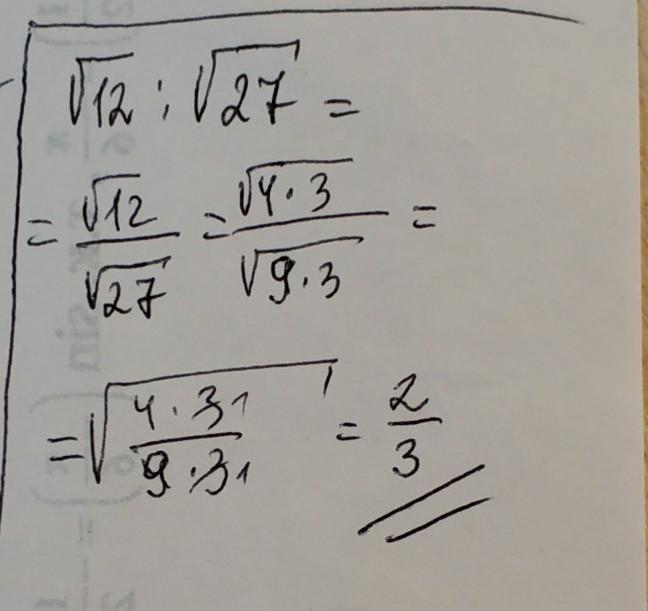 √12 : √27 =
= √12/√27 = √4·3/√9·3 =
= √4·31/9·31 = 2/3